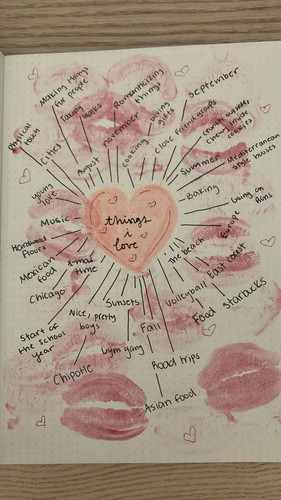 things
i
love
physical
touch
Cities
Making things
for people
Taking
walks
August
november
Romanticizing
things
cooking
giving
gifts
close friend groups
September
crunchy outside,
chewy inside
cookies
Summer
Mediterranean
style houses
Baking
living on
Europe
the beach
East coast
Volleyball
Food
Starbucks
Fall
Road trips
Asian food
Sunsets
Gym gang
Nice, pretty
boys
Chipotle
Start of
the school
year
Chicago
Xmas
time
Mexican
food
Hardwood
floors
Music
young
love